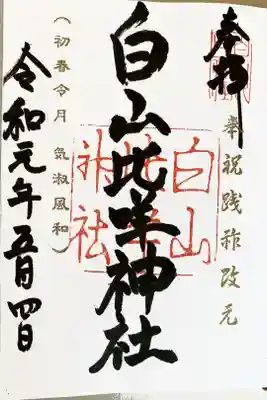 奉拝
奉祝践祚改元
白山比咩神社
白山
比咩
神社
(初春令月 気淑風和)
令和元年五月四日